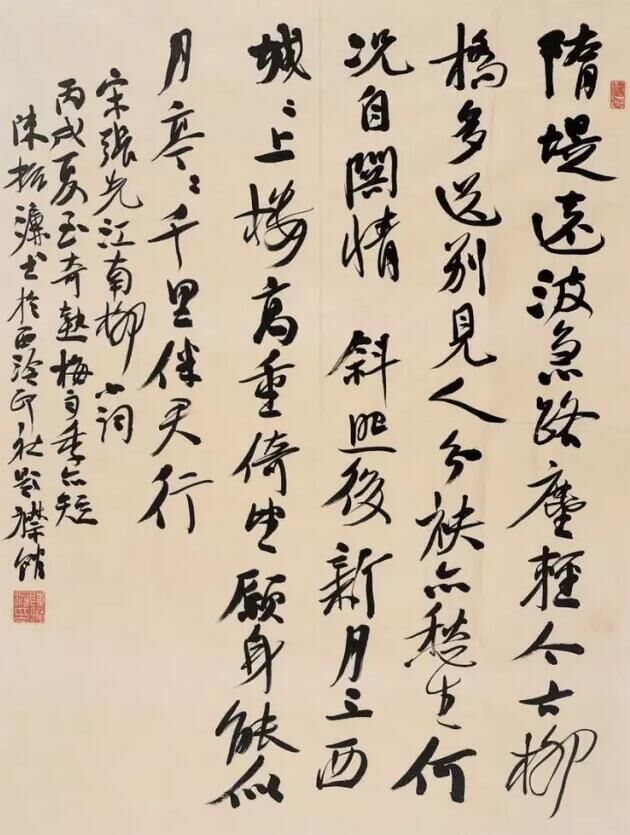 隋堤遠波急路塵輕今古柳
橋多送别見人分袂亦愁生何
況自關情 斜照後新月上西
城〻上樓高重倚望願身能似
月亭〻千里伴君行
宋張先江南柳小詞
丙戌夏至奇熱梅雨季亦短
陳振濂書於西泠印社襟館